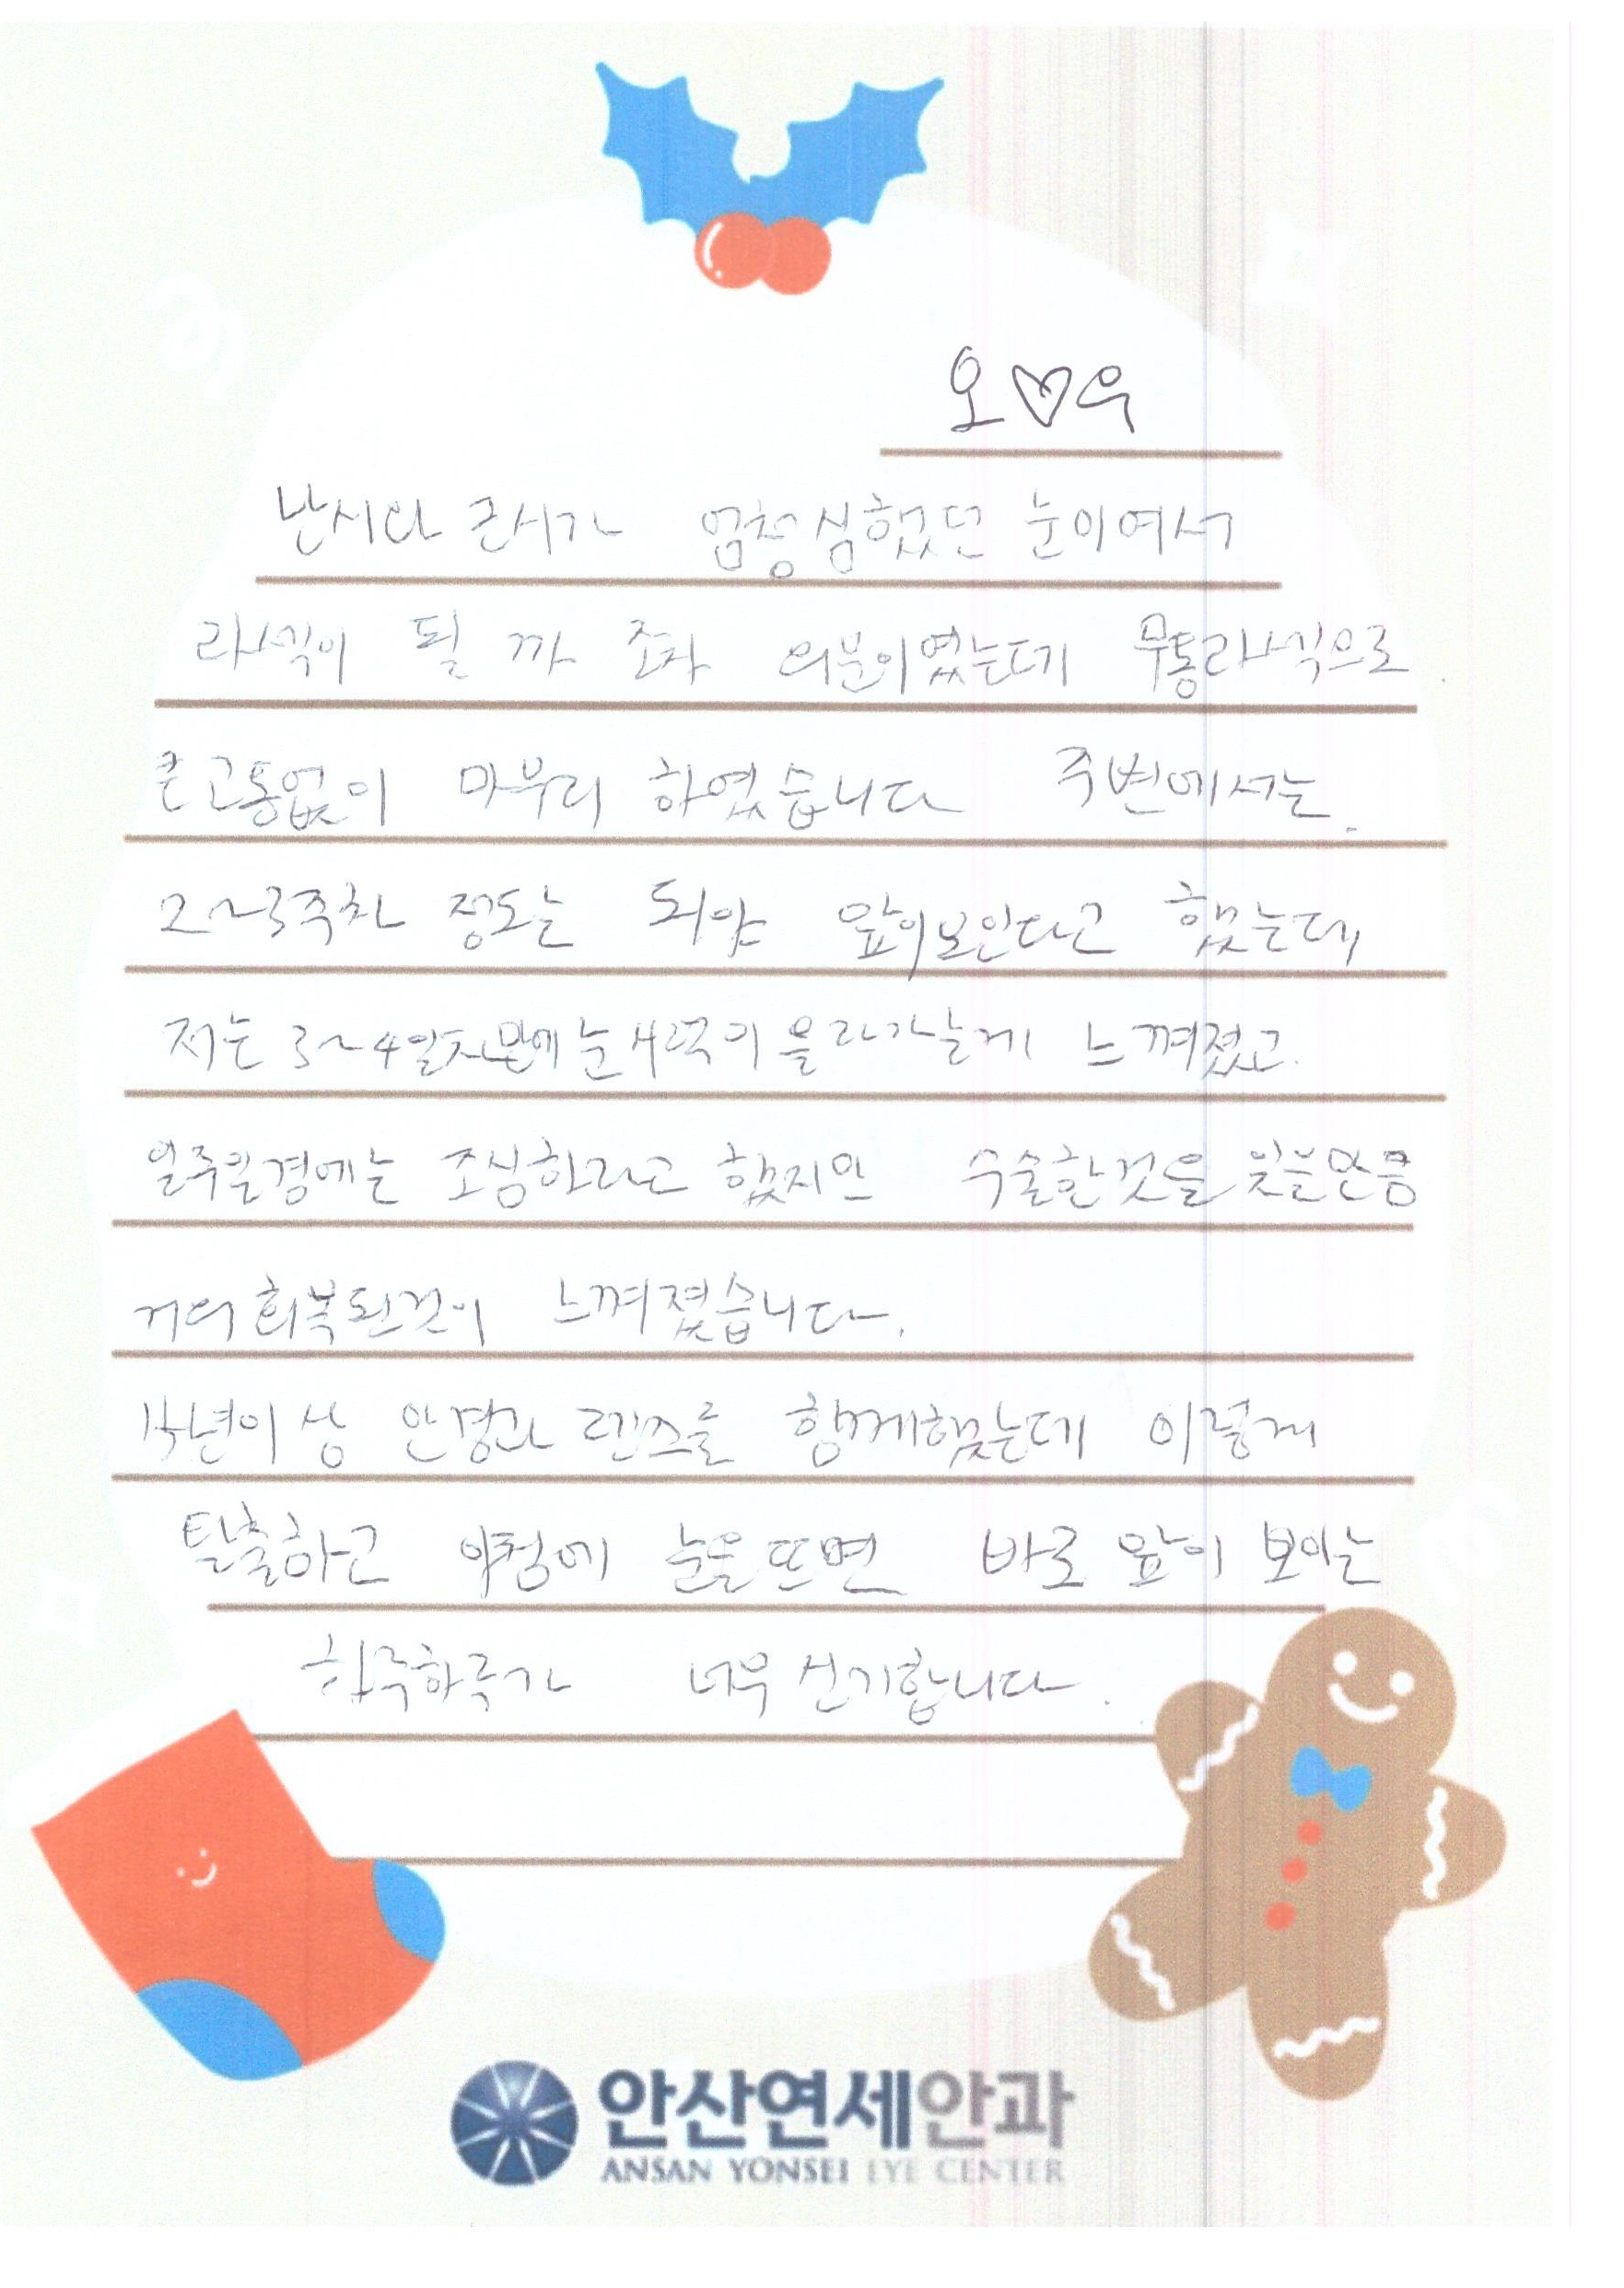 오♡우
난시랑 근시가 엄청심했던 눈이여서
라섹이 될 까 조차 의문이였는데 무통라섹으로
큰고통없이 마무리 하였습니다 주변에서는.
2~3주차 정도는 되야 앞이보인다고 했는데,
저는 3~4일차만에 눈시력이 올라가는게 느껴졌고.
일주일경에는 조심하라고 했지만 수술한것을 잊을만큼
거의 회복된것이 느껴졌습니다.
15년이상 안경과 렌즈를 함께했는데 이렇게
탈출하고 아침에 눈을뜨면 바로 앞이 보이는
하루하루가 너무 신기합니다.
안산연세안과
ANSAN YONSEI EYE CENTER